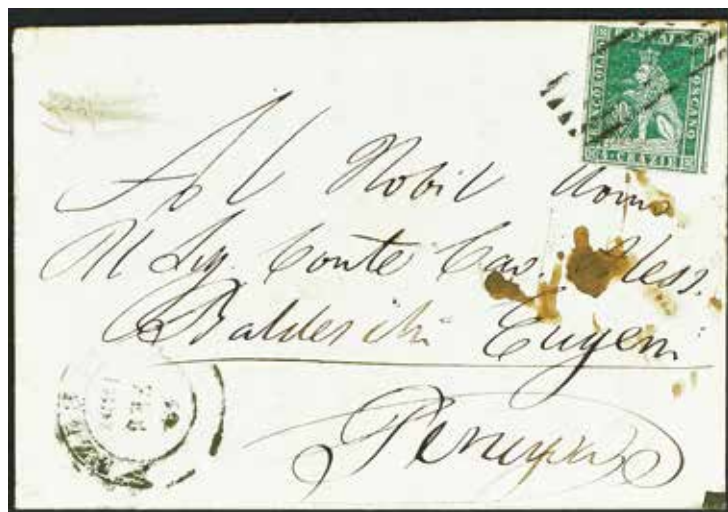 FRANCOBOLLO
POSTALE
TOSCANO
4·CRAZIE
Al Nobil Uomo
Il Sig. Conte Cav. Aless.
Baldeschi Eugeni
Perugia